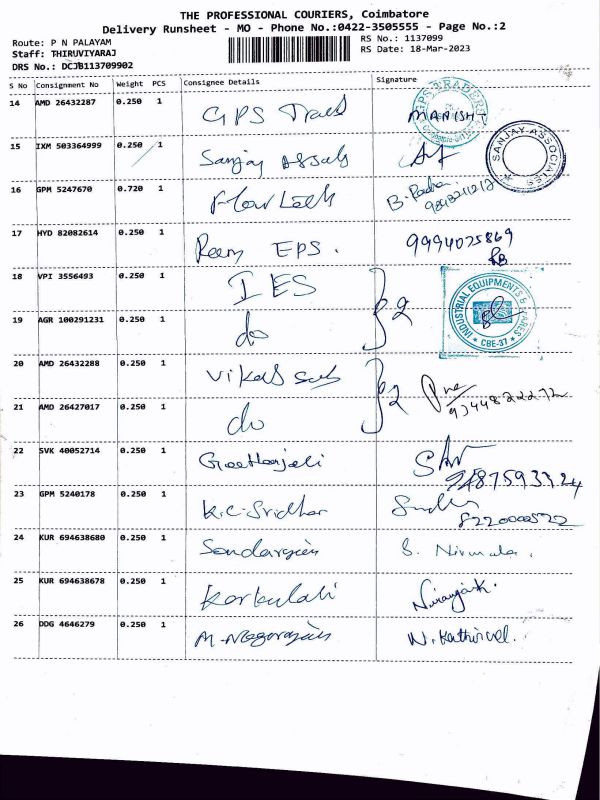 THE PROFESSIONAL COURIERS, Coimbatore
Delivery Runsheet - MO - Phone No.:0422-3505555 - Page No.:2
Route: P N PALAYAM
RS No.: 1137099
Staff: THIRUVIYARAJ
RS Date: 18-Mar-2023
DRS No.: DCJB113709902
S No Consignment No Weight PCS Consignee Details Signature
14 AMD 26432287 0.250 1 GPS Trad MANISH
GPS TRADERS
15 IXM 503364999 0.250 1 Sanjay
SANJAY ASSOCIATES
16 GPM 5247670 0.720 1 Flow B.
17 HYD 82082614 0.250 1 EPS. 9994025869
18 VPI 3556493 0.250 1 IES
2
INDUSTRIAL EQUIPMENTS & SPARES
CBE-37
19 AGR 100291231 0.250 1 do
20 AMD 26432288 0.250 1 Vikas
2
21 AMD 26427017 0.250 1 do
22 SVK 40052714 0.250 1 Geethanjali
23 GPM 5240178 0.250 1 K.C. Sridhar
8220000522
24 KUR 694638680 0.250 1 S. Nirmala.
25 KUR 694638678 0.250 1
26 DDG 4646279 0.250 1 M. Nagarajan N. Kathirvel.